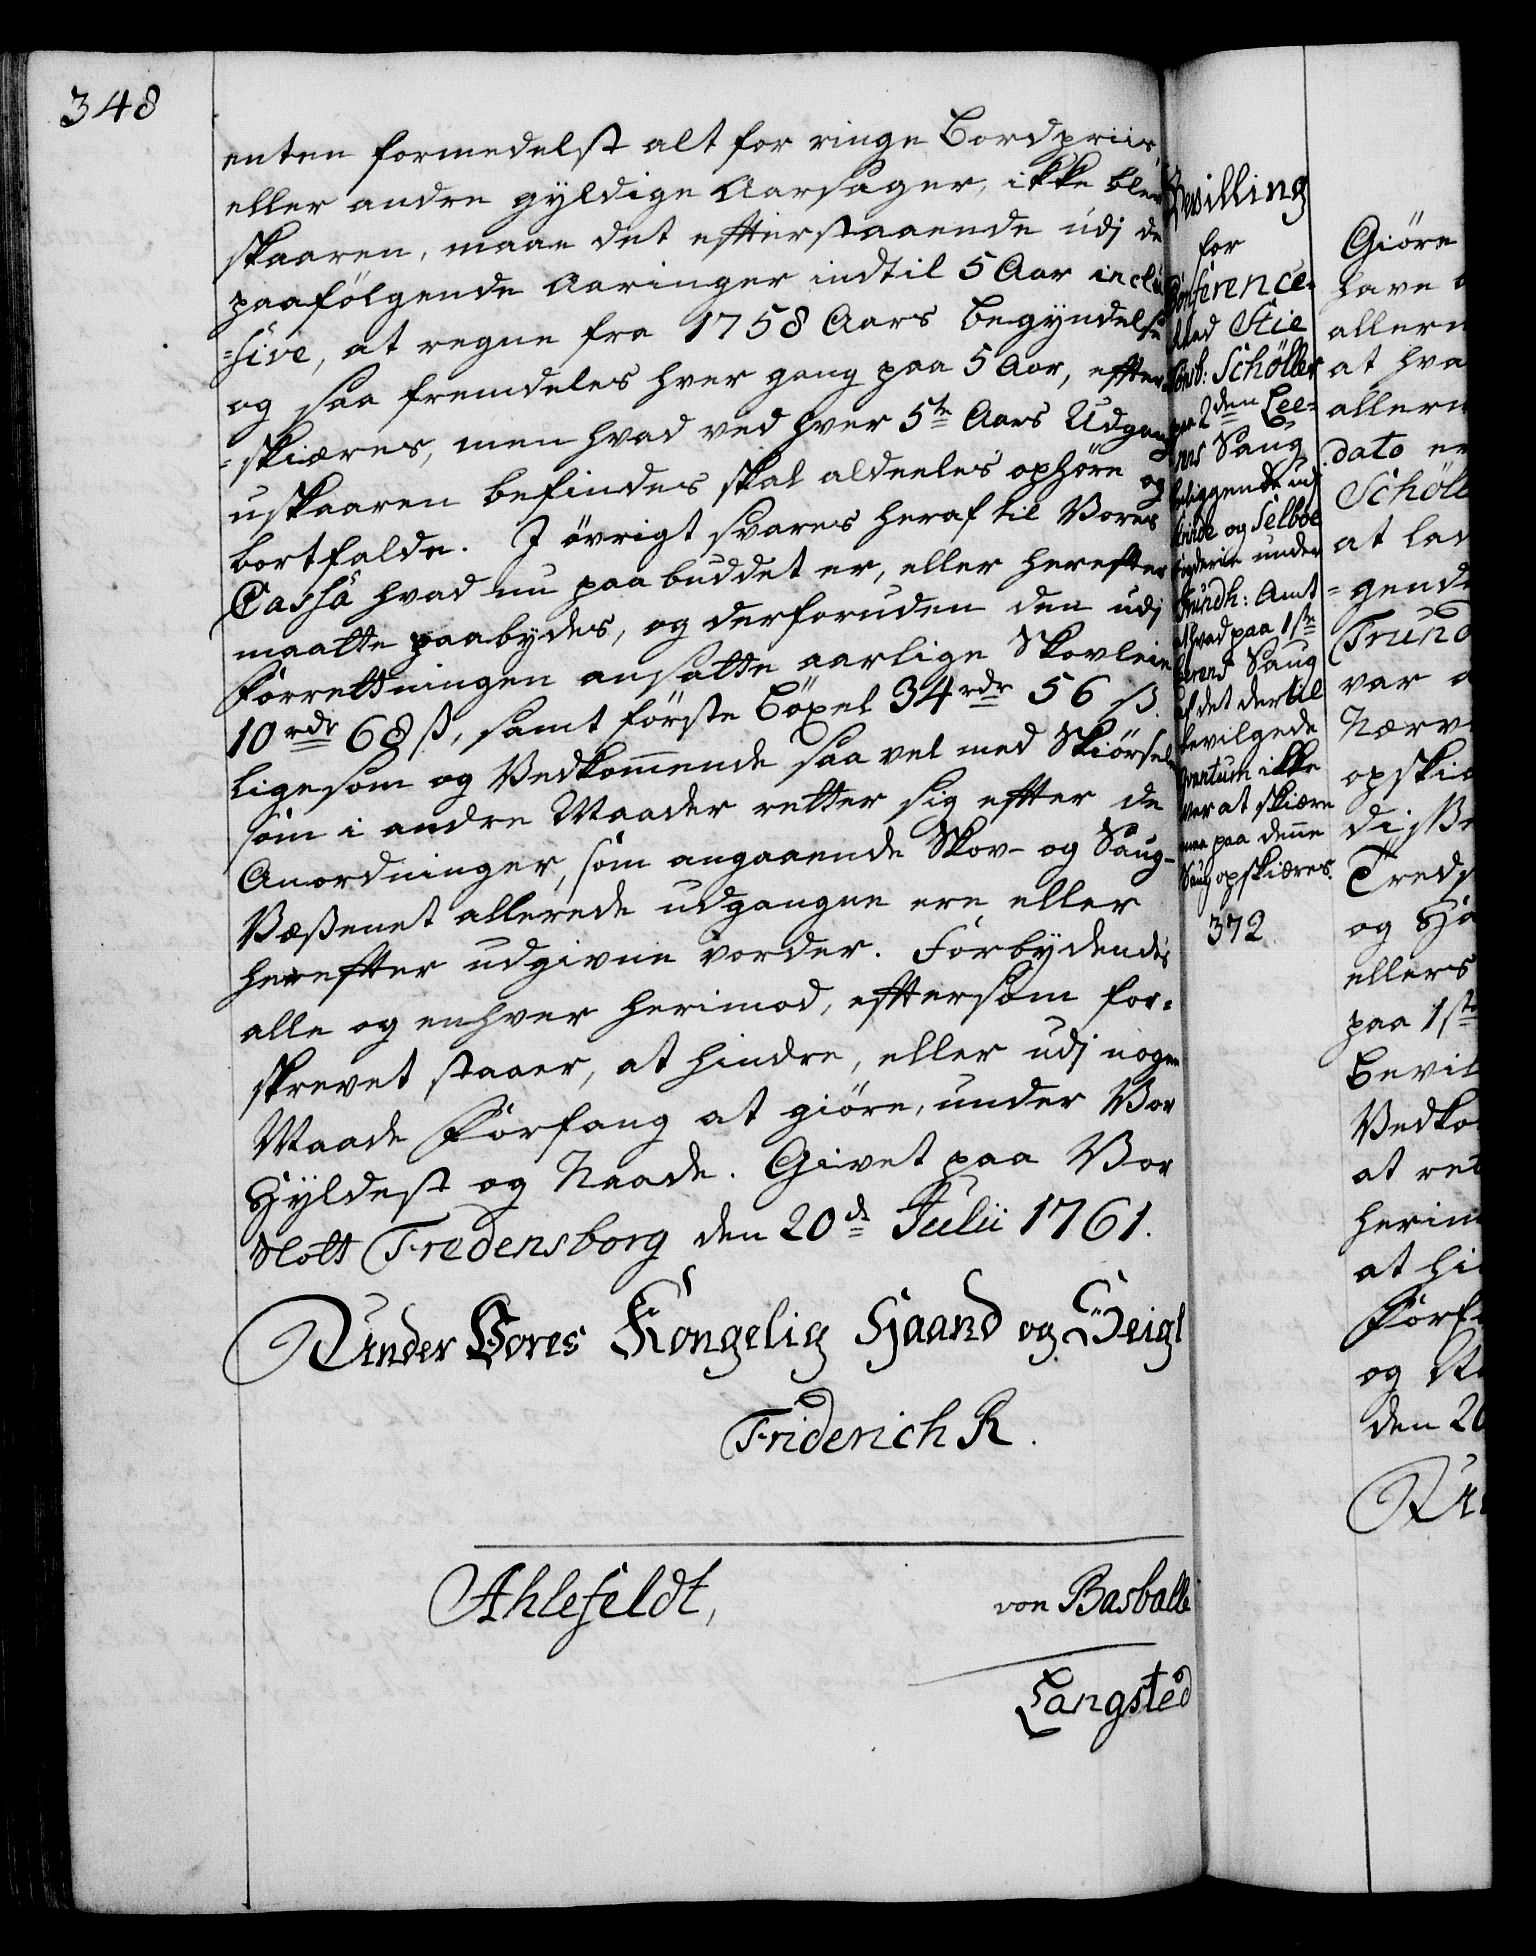 348
enten formedelst alt for ringe Bordpriis,
eller andre gyldige Aarsager, ikke blev
skaaren, maae det efterstaaende udj de
paafölgende Aaringer indtil 5 Aar inclu
=sive, at regne fra 1758 Aars Begyndelse
og saa fremdeles hver gang paa 5 Aar, efter
=skiæres, men hvad ved hver 5te Aars Udgang
uskaaren befindes skal aldeeles ophöre og
bortfalde. J övrigt svares heraf til Vores
Cassa hvad nu paabuddet er, eller herefter
maatte paabydes, og derforuden den udj
Forrettningen ansatte aarlige Skovleie
10 rdr 68 ß, samt förste Böxel 34 rdr 56 ß.
ligesom og Vedkom̅ende saa vel med Skiörsel
som i andre Maader retter sig efter de
Anordninger, som angaaende Skov- og Saug-
Væßenet allerede udgangne ere eller
herefter udgivne vorder. Forbydendes
alle og enhver herimod, eftersom for=
skrevet staaer, at hindre, eller udj nogen
Maade Forfang at giöre, under Vor
Hyldest og Naade. Givet paa Vor
Slott Fredensborg den 20de Julii 1761.
Under Vores Kongelig Haand og Seigl
Friderich R.
Ahlefeldt,
von Basballe
Langsted
Bewilling
for
Conference
Raad Stie
Tonsb: Schöller
paa 2den Lee=
rens Saug
beliggende udj
Strinde og Selboe
Fogderie under
Trundh: Amt
at hvad paa 1ste
Leerens Saug
af det dertil
bevilgede
Qvantum ikke
var at skiære
maa paa den̅e
Saug opskiæres.
372
Giöre
have
allern
at hva
allern
dato er
Schöll
at lad
=gende
Trund
var
Nærv
opskiæ
diße
Treds
og
ellers
paa 1ste
Bevil
Vedko
at ret
herim
at hi
Forf
og
den 20
Un